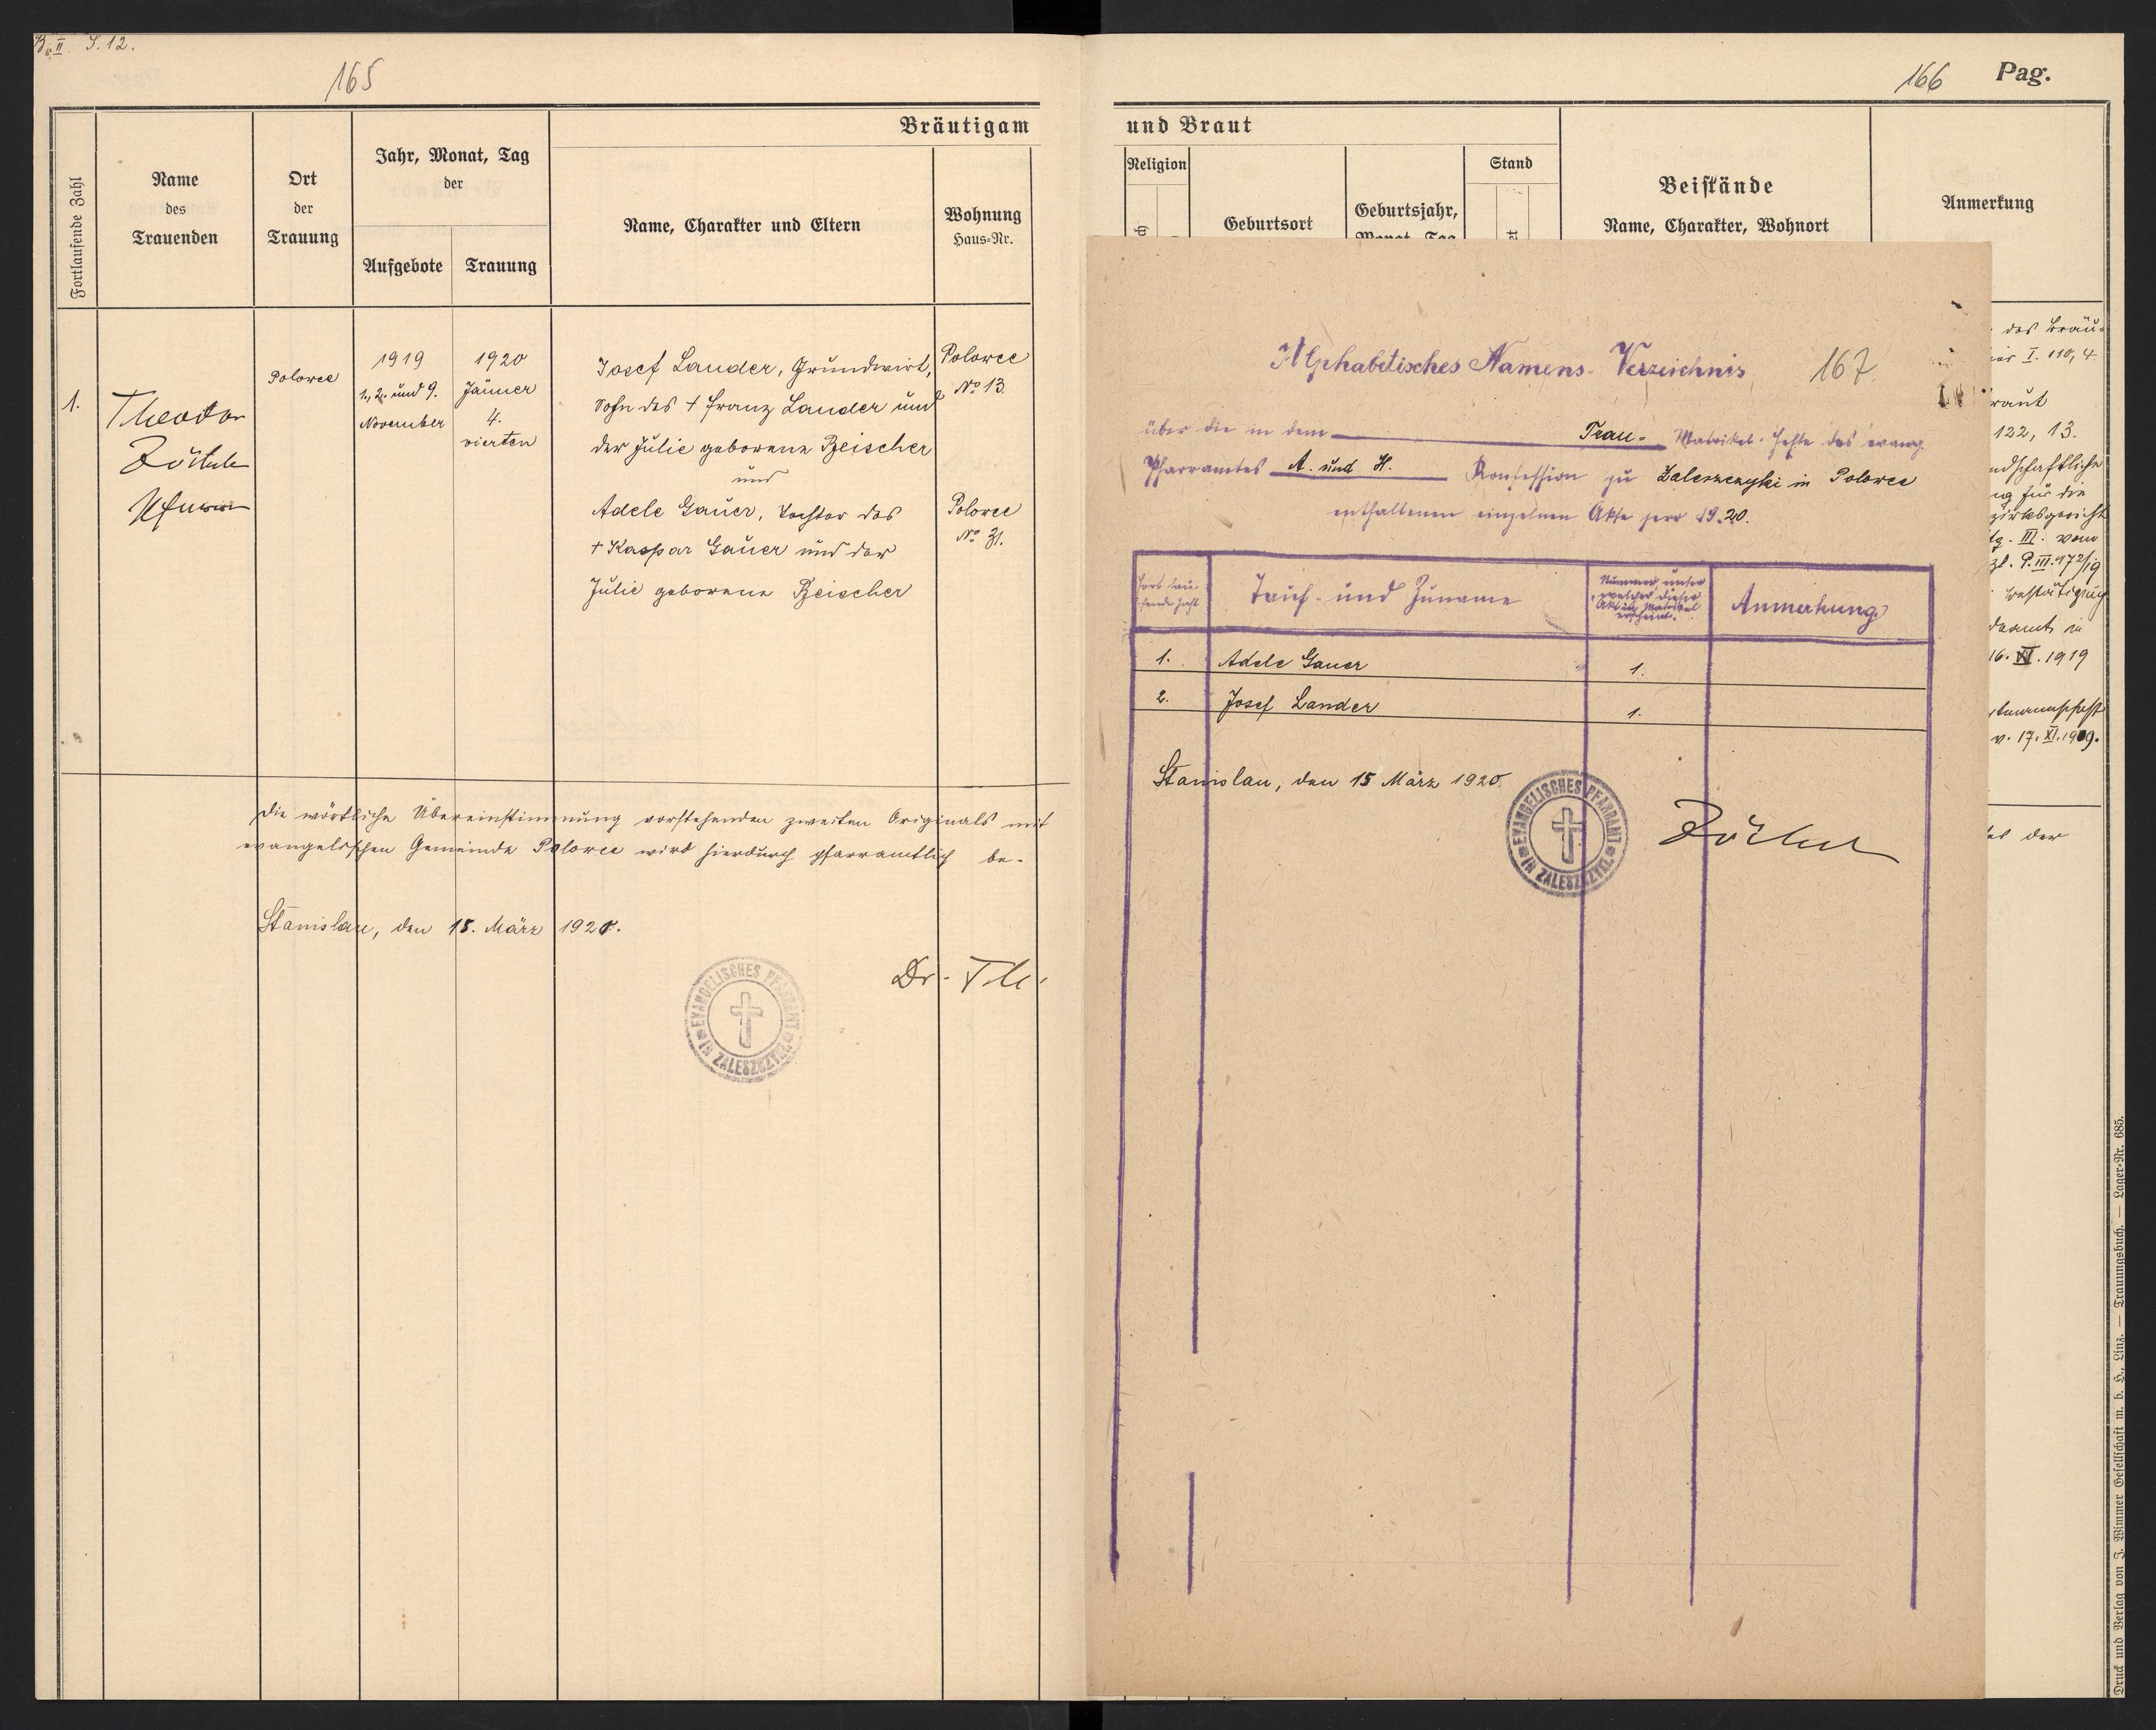 B. II. S. 12.
165
Bräutigam
Fortlaufende Zahl
Name
des
Trauenden
Ort
der
Trauung
Jahr, Monat, Tag
der
Aufgebote
Trauung
Name, Charakter und Eltern
Wohnung
Haus=Nr.
1.
Theodor
Zöckler
Polowce
1919
1., 2. und 9.
November
1920
Jänner
4.
vierten
Josef Lander, Grundwirt,
Sohn des † Franz Lander und
der Julie geborene Beischer
und
Adele Gauer, Tochter des
† Kaspar Gauer und der
Julie geborene Beischer
Polowce
No 13.
Polowce
No 31.
Die wörtliche Übereinstimmung vorstehenden zweiten Originals mit
evangelischen Gemeinde Polowce wird hierdurch pfarramtlich be-
Stanislau, den 15. März 1920.
Dr. Th.
EVANGELISCHES PFARRAMT
IN ZALESZCZYKI
166 Pag.
und Braut
Religion
Geburtsort
Geburtsjahr,
Monat, Tag
Stand
Beistände
Name, Charakter, Wohnort
Anmerkung
des Bräu-
I. 110, 4.
raut
122, 13.
ndschaftliche
ng für die
zirksgericht
tg. III. vom
zl. P.III.972/19
bestätigung
deamts in
16. XI. 1919
tmannschaft
v. 17. XI. 1919.
der
Alphabetisches Namens-Verzeichnis 167
über die in dem Trau- Matrikel-Hefte des evang.
Pfarramtes A. und H. Konfession zu Zaleszczyki in Polowce
enthaltenen einzelnen Akte pro 1920.
Fortlau-
fende Zahl
Tauf- und Zuname
Nummer unter
welcher dieser
Akt in Matrikel
erscheint.
Anmerkung
1. Adele Gauer 1.
2. Josef Lander 1.
Stanislau, den 15 März 1920.
EVANGELISCHES PFARRAMT
IN ZALESZCZYKI
Zöckler
Druck und Verlag von J. Wimmer Gesellschaft m. b. H., Linz. — Trauungsbuch. — Lager=Nr. 685.